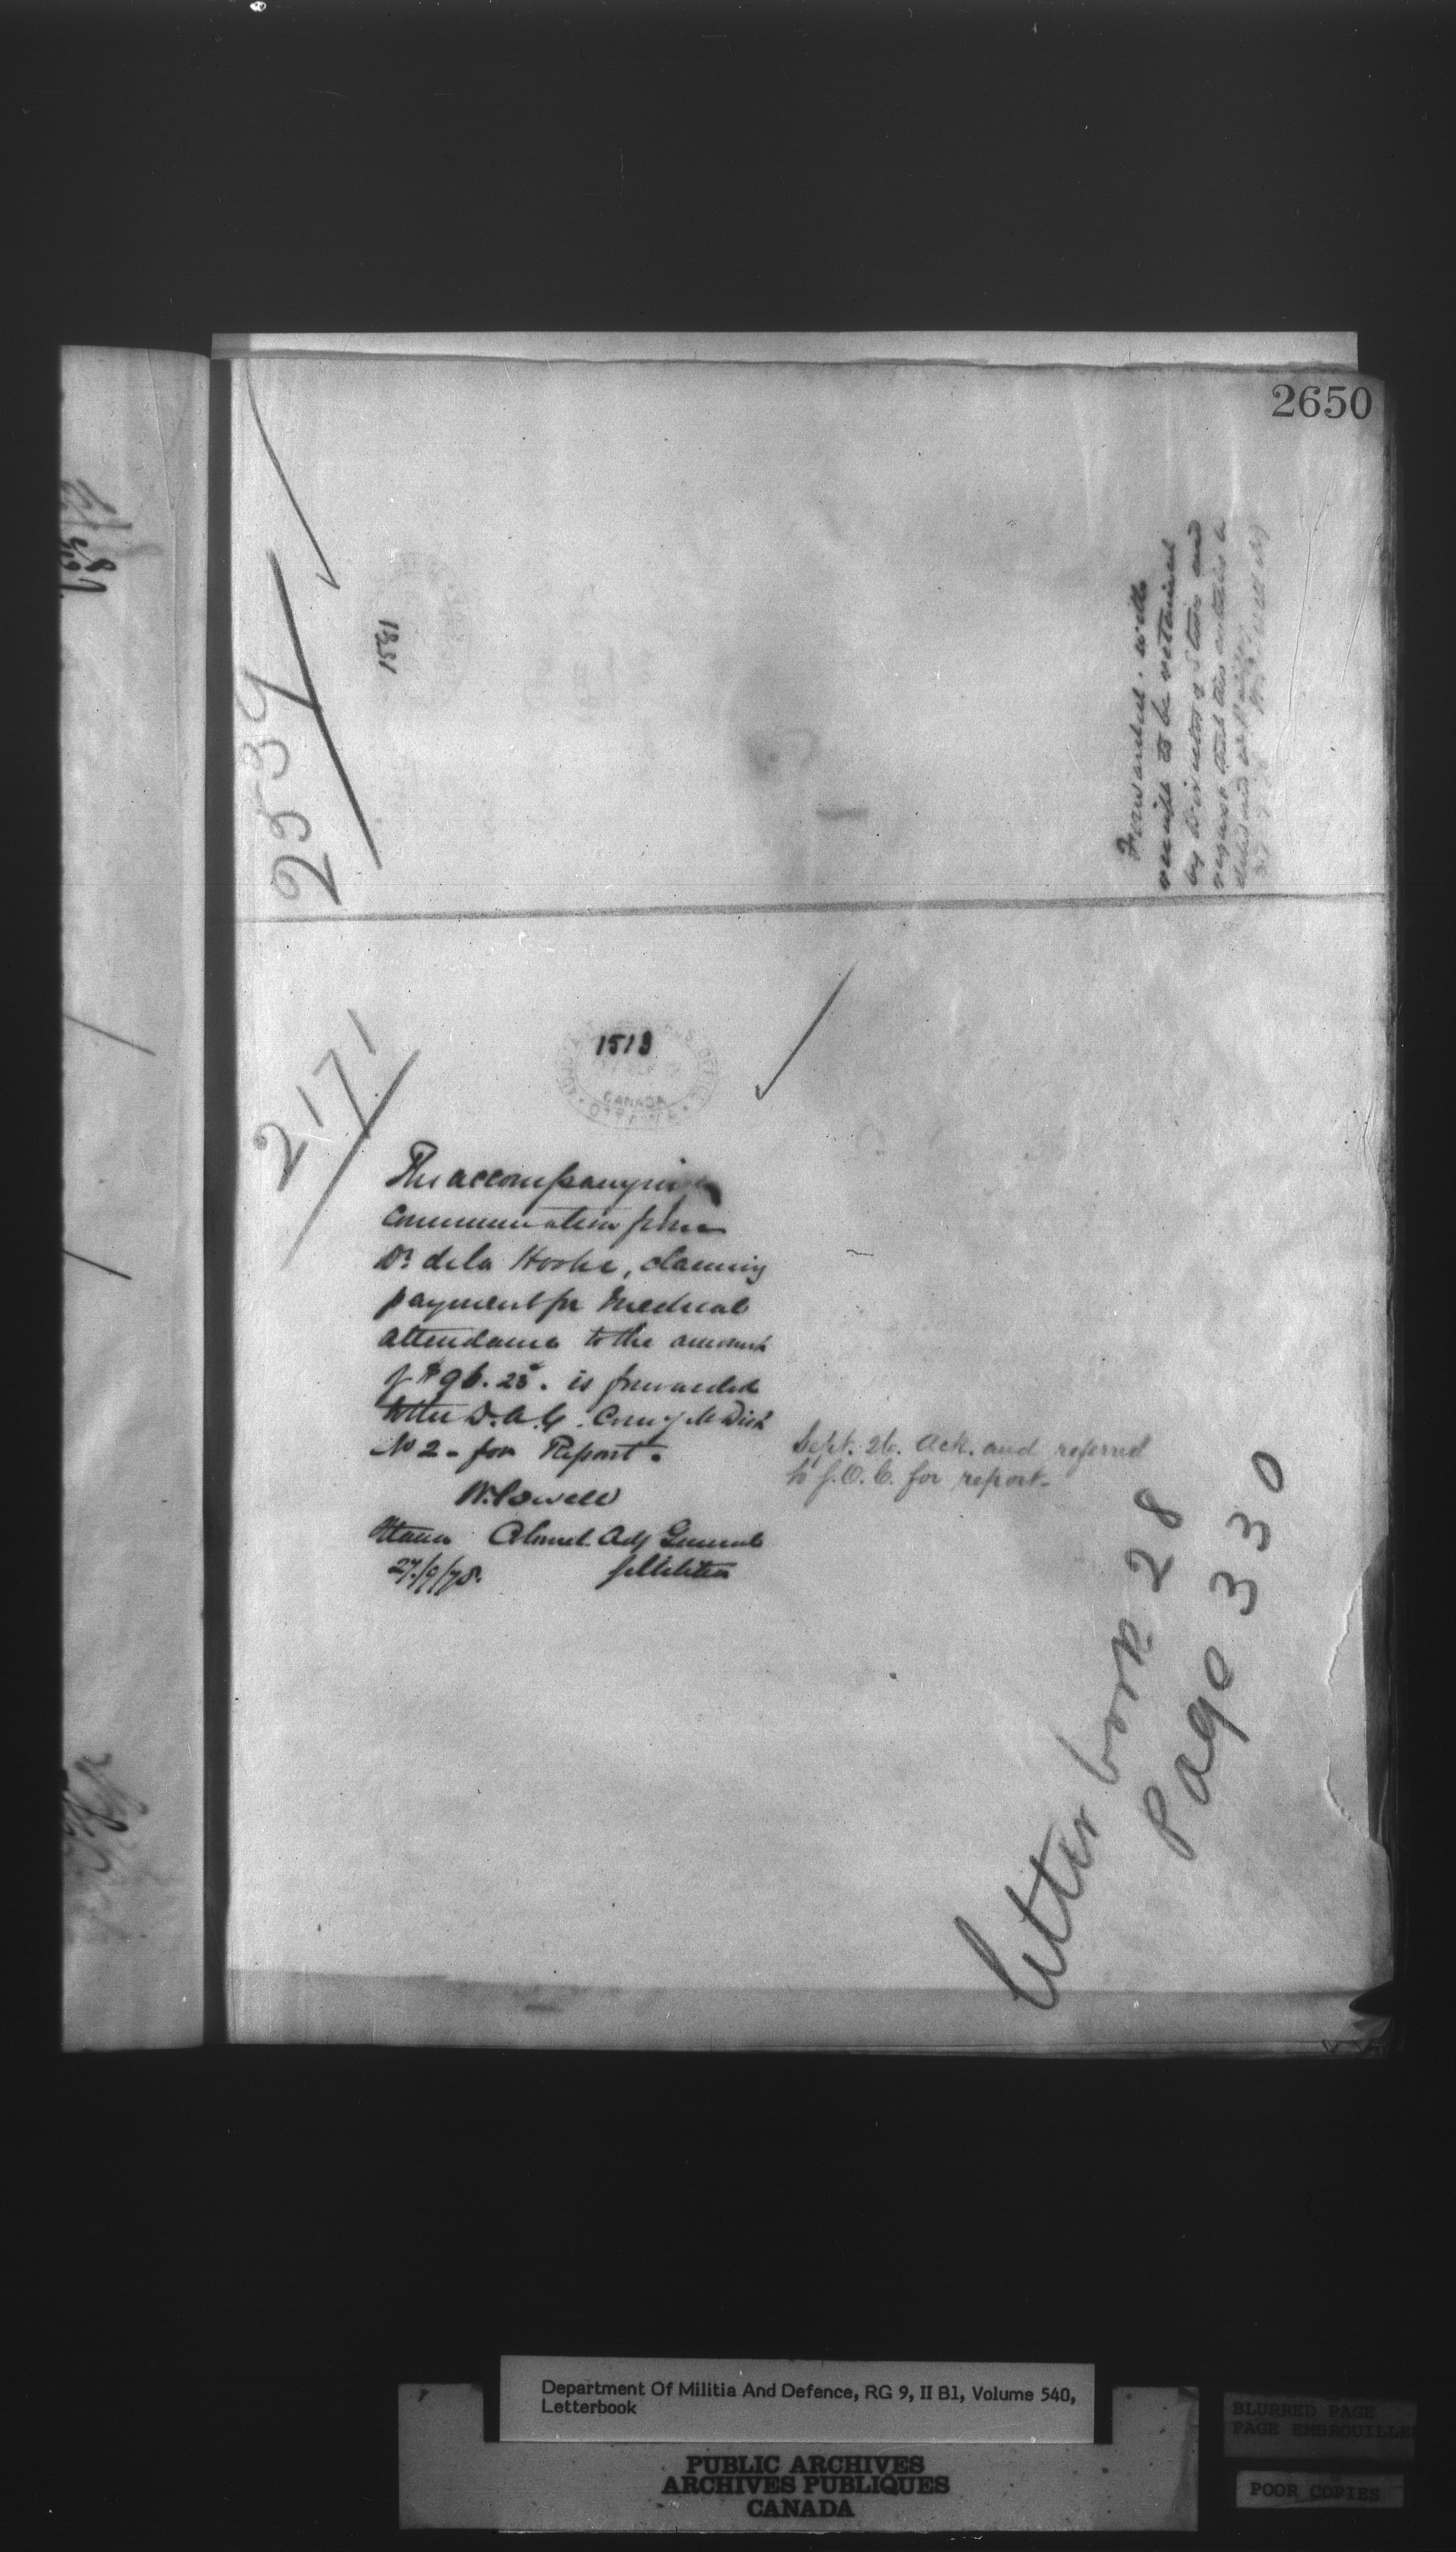 2650
2539
1331
Forwarded. with
to be retained
by Director of Stores and
request that this
2171
1513
CANADA
OTTAWA
The accompanying
Communication from
Dr. de la Hooke, claiming
payment for Medical
attendance to the amount
of $96.25. is forwarded
to the D.A.G. Comg M Dist
No 2 - for Report.
W. Powell
Ottawa Colonel. Adj General
27/9/78. of Militia
Sept. 26. Ack. and referred
to G.O.C. for report.
letter book 28
Page 330
Department Of Militia And Defence, RG 9, II B1, Volume 540,
Letterbook
PUBLIC ARCHIVES
ARCHIVES PUBLIQUES
CANADA
BLURRED PAGE
PAGE EMBROUILLE
POOR COPIES